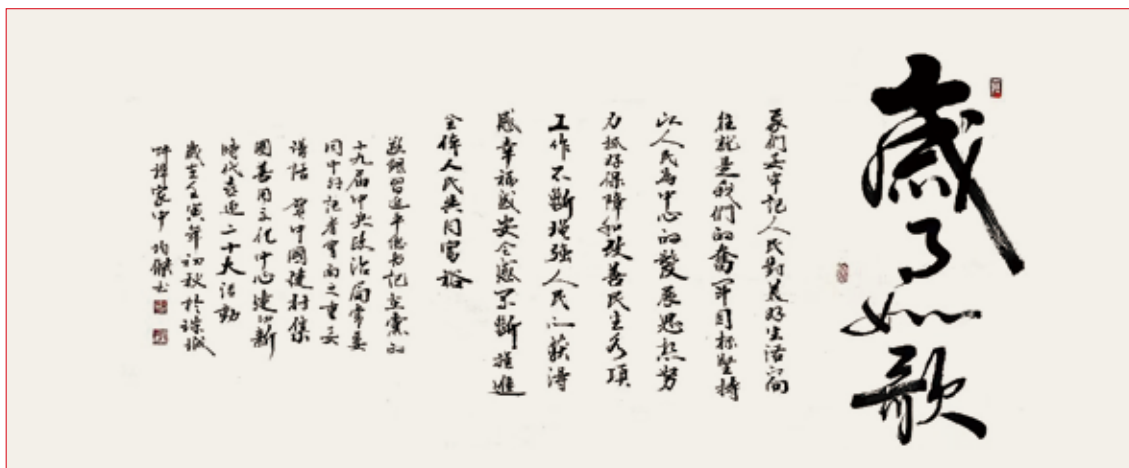 歲月如歌
我们要牢记人民對美好生活向
往就是我們的奮鬥目标堅持
以人民為中心的發展思想努
力抓好保障和改善民生各項
工作不斷增强人民的获得
感幸福感安全感不斷推進
全体人民共同富裕
敬録習近平總书记在黨的
十九届中央政治局常委
同中外記者會面之重要
講話 賀中國建材集
團善用文化中心建功新
時代喜迎二十大活動
歲在壬寅年初秋於